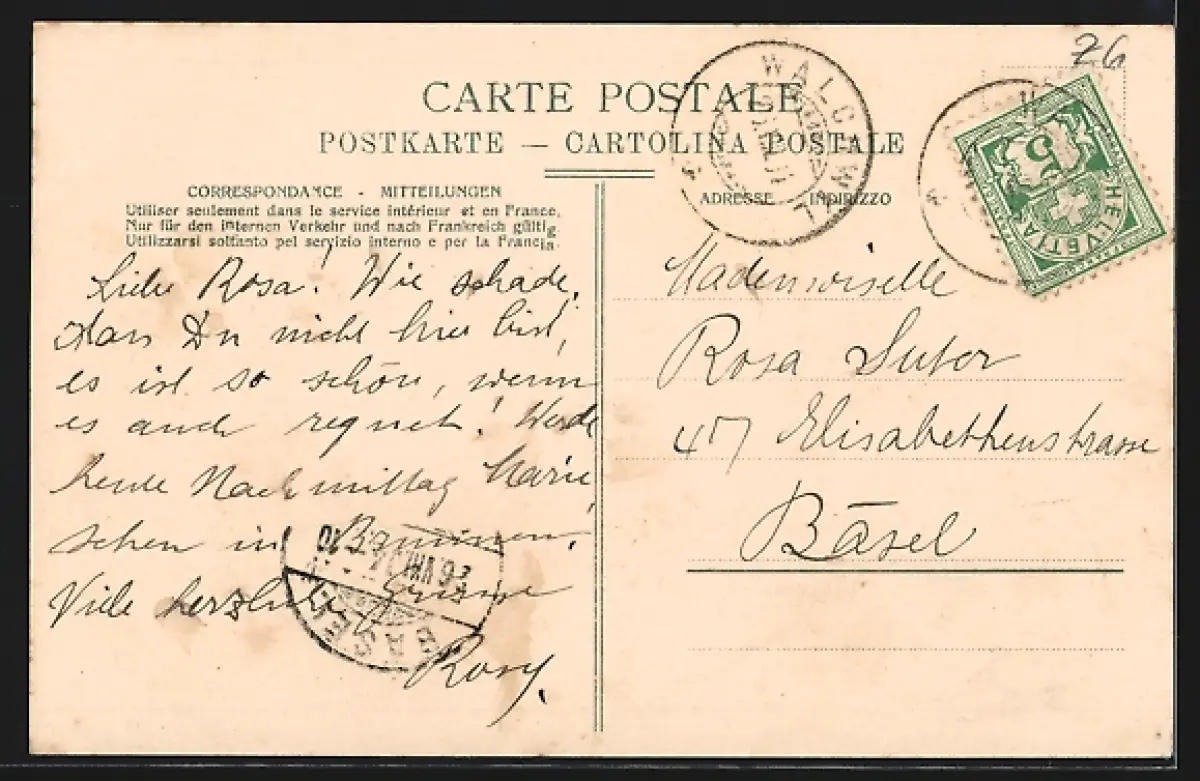 26
CARTE POSTALE
POSTKARTE — CARTOLINA POSTALE
CORRESPONDANCE - MITTEILUNGEN
Utiliser seulement dans le service intérieur et en France.
Nur für den internen Verkehr und nach Frankreich gültig.
Utilizzarsi soltanto pel servizio interno e per la Francia.
ADRESSE INDIRIZZO
WALCHWIL
5
HELVETIA
Liebe Rosa! Wie schade,
dass Du nicht hier bist,
es ist so schön, wenn
es auch regnet! Werde
heute Nachmittag Marie
sehen in
Viele herzliche Grüsse
Rosy.
BASEL
26 VIII
10
Mademoiselle
Rosa Suter
47 Elisabethenstrasse
Basel